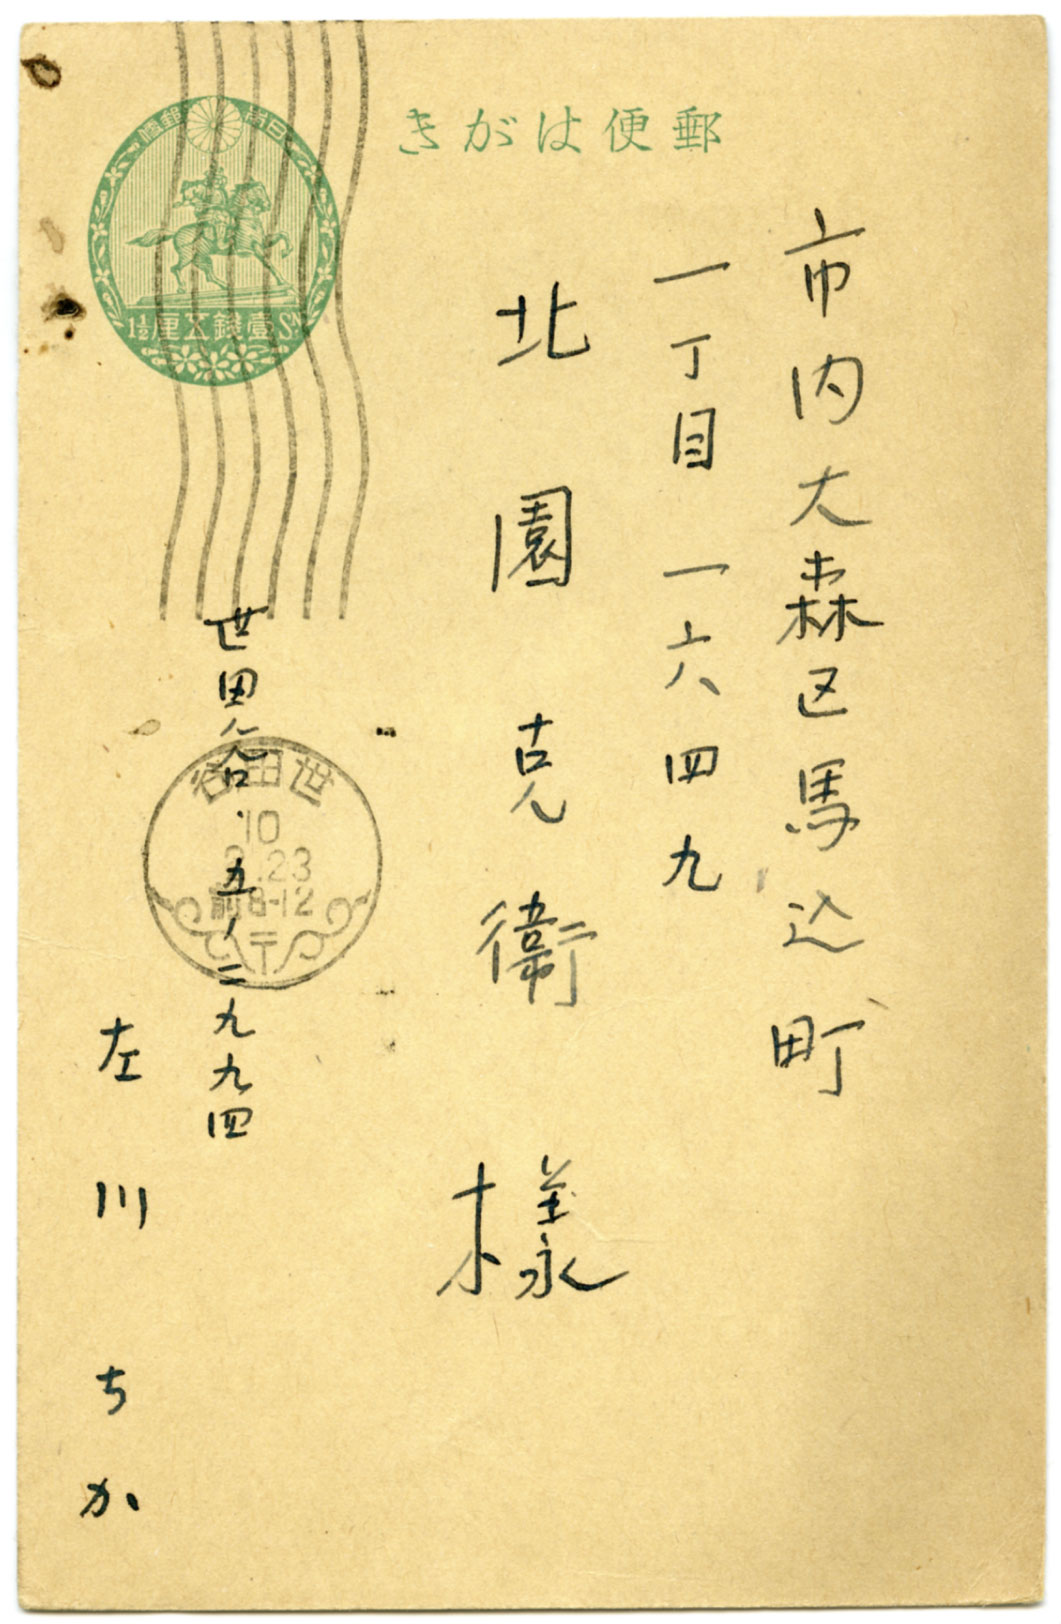 郵便はがき
日本
郵便
1½
壹錢五厘
Sn
市内大森区馬込町
一丁目一六四九
北園克衛
様
世田谷、五ノ二九九四
左川ちか
世田谷
10
.23
前8-12
〒